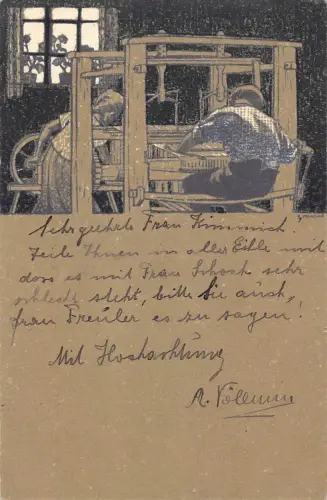 Sehrgeehrte Frau Kimmich!
Teile Ihnen in aller Eile mit
dass es mit Frau Schoch sehr
schlecht steht, bitte Sie auch,
frau Freuler es zu sagen!
Mit Hochachtung
A. Völlmin